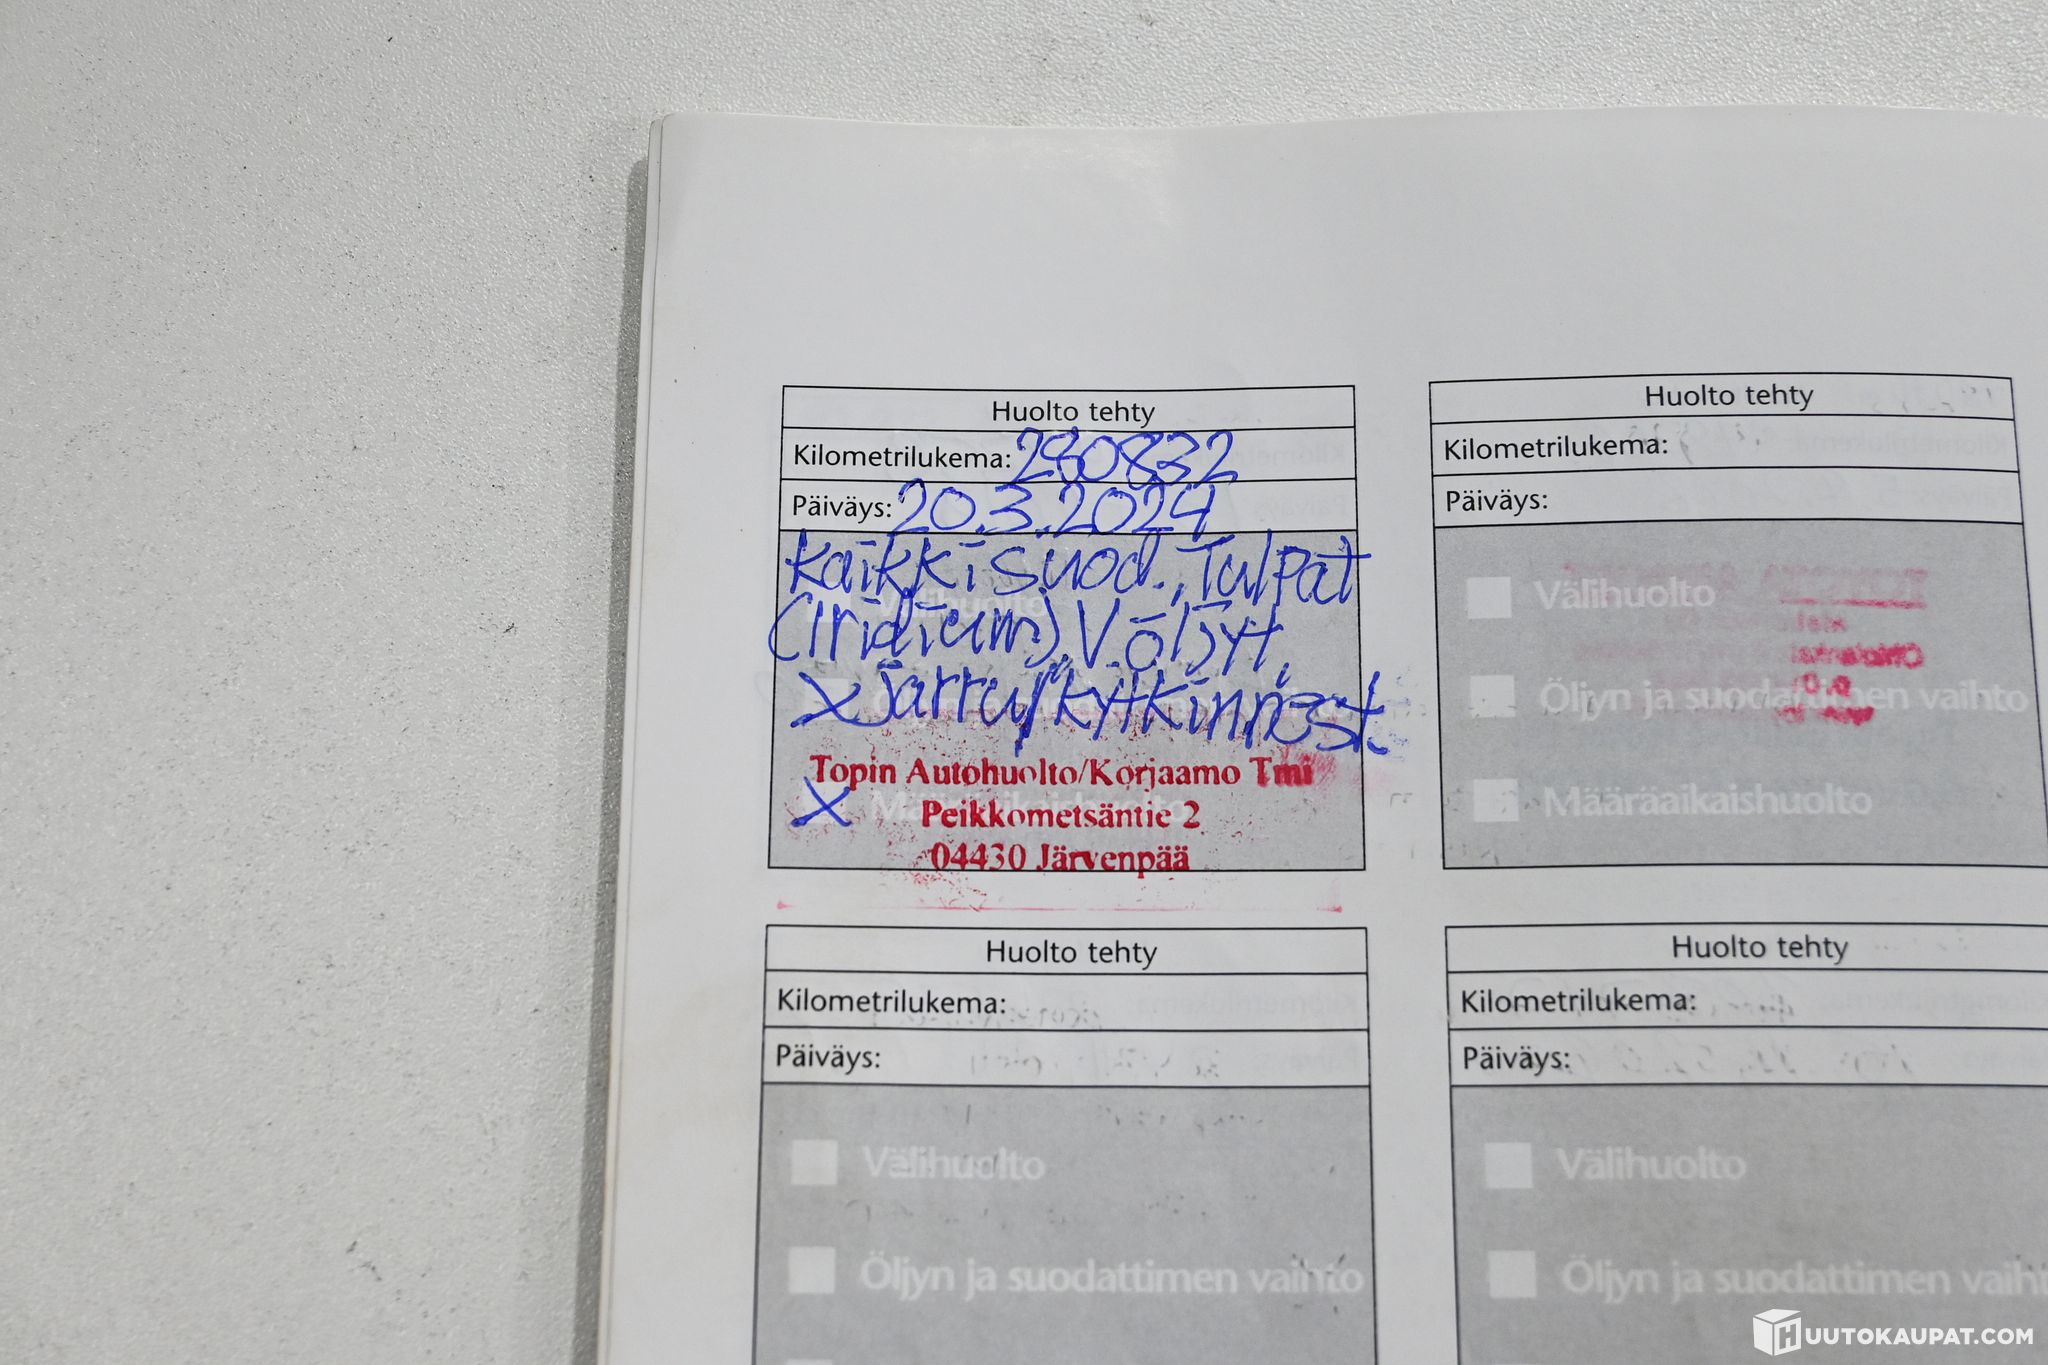 Huolto tehty
Kilometrilukema: 280832
Päiväys: 20.3.2024
Kaikki suod., Tulpat
(Iridium), V.öljyt,
X Jarru/kytkinnest.
Topin Autohuolto/Korjaamo Tmi
X Määräaikaishuolto
Peikkometsäntie 2
04430 Järvenpää
Huolto tehty
Kilometrilukema:
Päiväys:
Välihuolto
Öljyn ja suodattimen vaihto
Määräaikaishuolto
Huolto tehty
Kilometrilukema:
Päiväys:
Välihuolto
Öljyn ja suodattimen vaihto
Huolto tehty
Kilometrilukema:
Päiväys:
Välihuolto
Öljyn ja suodattimen vaiht
HUUTOKAUPAT.COM